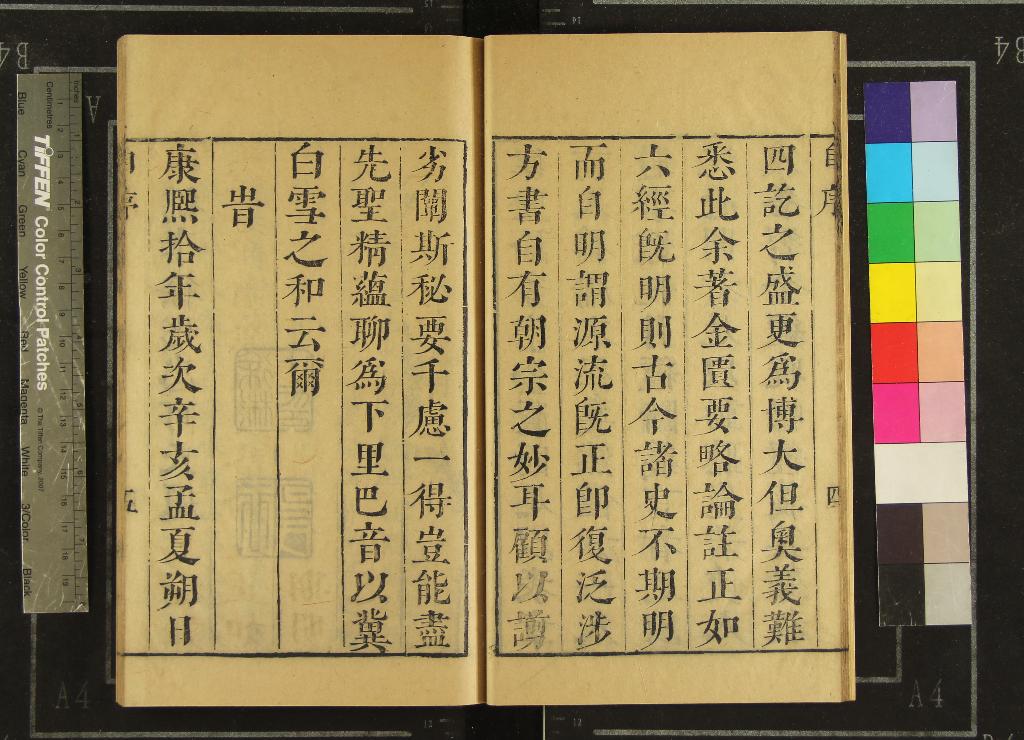 自序
四訖之盛更為博大但奧義難
悉此余著金匱要略論註正如
六經旣明則古今諸史不期明
而自明謂源流旣正卽復泛涉
方書自有朝宗之妙耳顧以謭
四
劣闡斯秘要千慮一得豈能盡
先聖精蘊聊為下里巴音以冀
白雪之和云爾
旹
康熙拾年歲次辛亥孟夏朔日
五
TIFFEN Color Control Patches
© The Tiffen Company, 2007
Centimetres
Inches
Blue
Cyan
Green
Yellow
Red
Magenta
White
3/Color
Black
B4
A4
A4